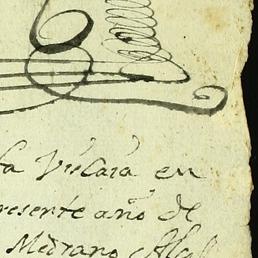 fa Vicaria en
resente año de
Medrano Alcal